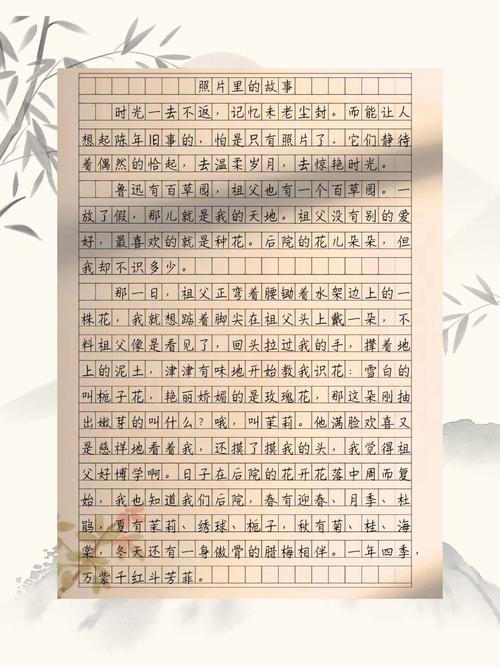 照片里的故事
时光一去不返,记忆未老尘封。而能让人
想起陈年旧事的,怕是只有照片了。它们静待
着偶然的恰起,去温柔岁月,去惊艳时光。
鲁迅有百草园,祖父也有一个百草园。一
放了假,那儿就是我的天地。祖父没有别的爱
好,最喜欢的就是种花。后院的花儿朵朵,但
我却不识多少。
那一日,祖父正弯着腰锄着水架边上的一
株花,我就想踮着脚尖在祖父头上戴一朵,不
料祖父像是看见了,回头拉过我的手,撵着地
上的泥土,津津有味地开始教我识花:雪白的
叫栀子花,艳丽娇媚的是玫瑰花,那这朵刚抽
出嫩芽的叫什么?哦,叫茉莉。他满脸欢喜又
是慈祥地看着我,还摸了摸我的头,我觉得祖
父好博学啊。日子在后院的花开花落中周而复
始,我也知道我们后院,春有迎春、月季、杜
鹃,夏有茉莉、绣球、栀子,秋有菊、桂、海
棠,冬天还有一身傲骨的腊梅相伴。一年四季,
万紫千红斗芳菲。